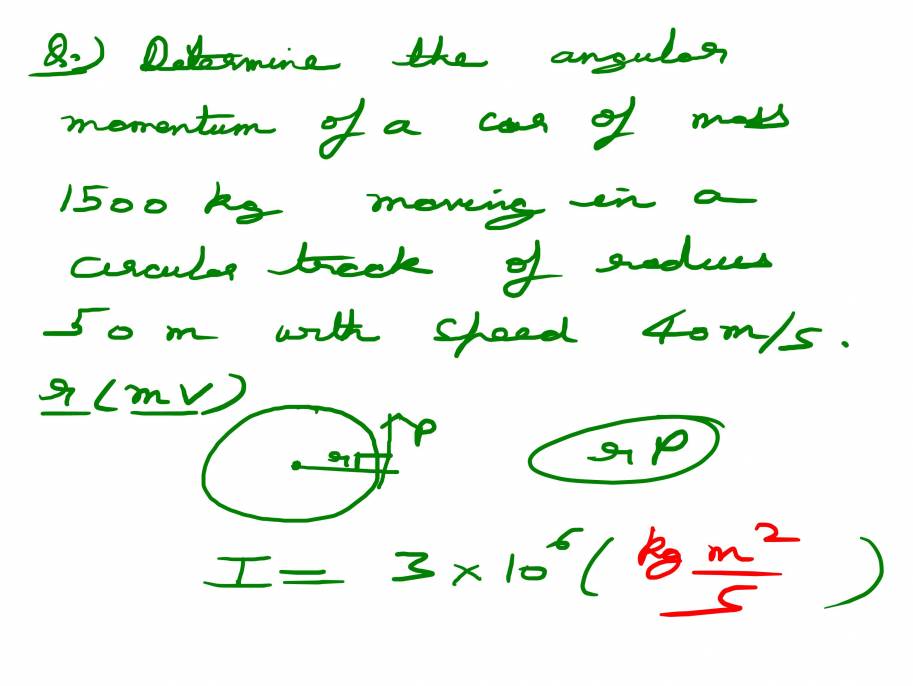 Q:) Determine the angular
momentum of a car of mass
1500 kg moving in a
circular track of radius
50 m with speed 40 m/s.
r(mv)
r P
r P
I = 3 × 10⁶ (kg m²/s)